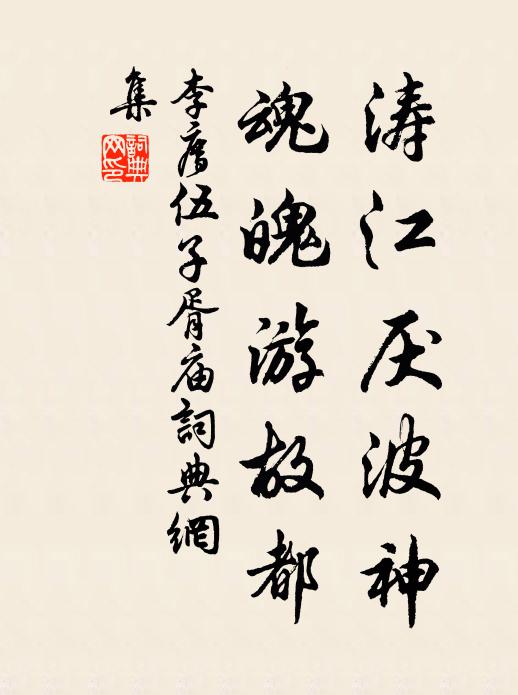 涛江厌波神
魂魄游故都
李廌伍子胥庙詞典網
集
詞典網印